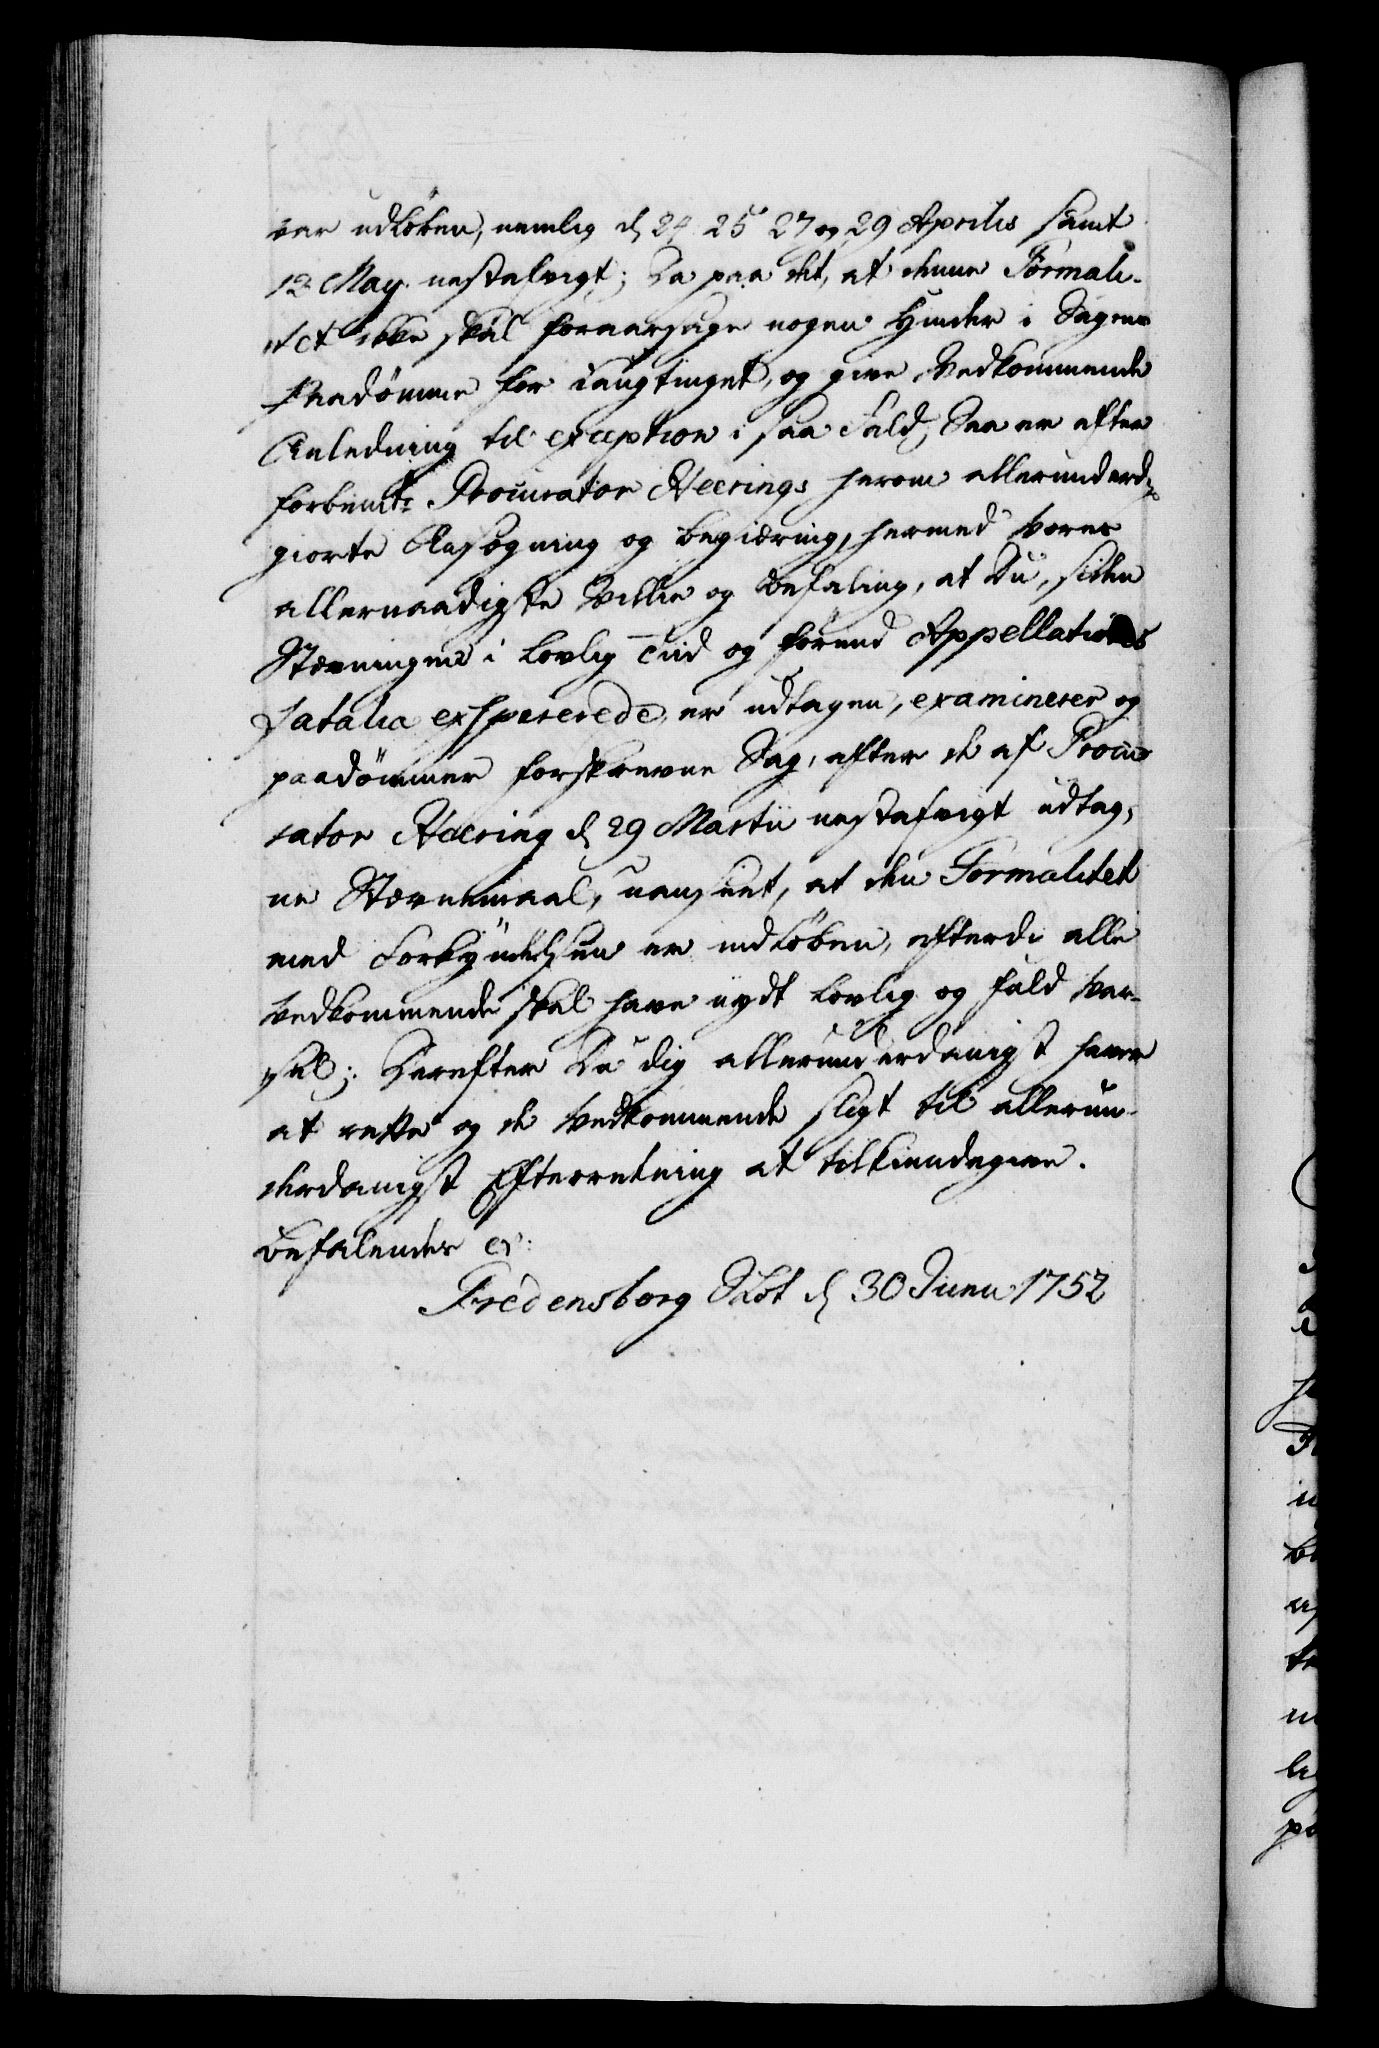 var udløben, nemlig d 24 25 27 og 29 Aprilis samt
12 May nestafvigt; Da paa det, at denne Formali-
tet ikke skal foraarsage nogen Hinder i Sagens
Paadømme for Laugtinget, og give Vedkommende
Anledning til exception i saa Fald, Saa er efter
forbemte Procurator Heerings herom allerunderd:
giorte Ansøgning og begiæring, hermed Vores
allernaadigste Villie og Befaling, at Du, siden
Stevningen i lovlig Tiid og førend Appellations
fatalia exspirerede er udtagen, examinerer og
paadømmer forskrevne Sag, efter de af Procu-
rator Heering d 29 Martii nestafvigt udtag-
ne Stevnemaal, uanseet, at den Formalitet
med Forkyndelsen er indløben, efterdi alle
Vedkommende skal have nydt lovlig og fuld Var-
sel; Derefter Du dig allerunderdanigst haver
at rette og de Vedkommende sligt til allerun-
derdanigst Efterretning at tilkiendegive.
Befalendes etc:
Fredensborg Slot d 30 Junii 1752